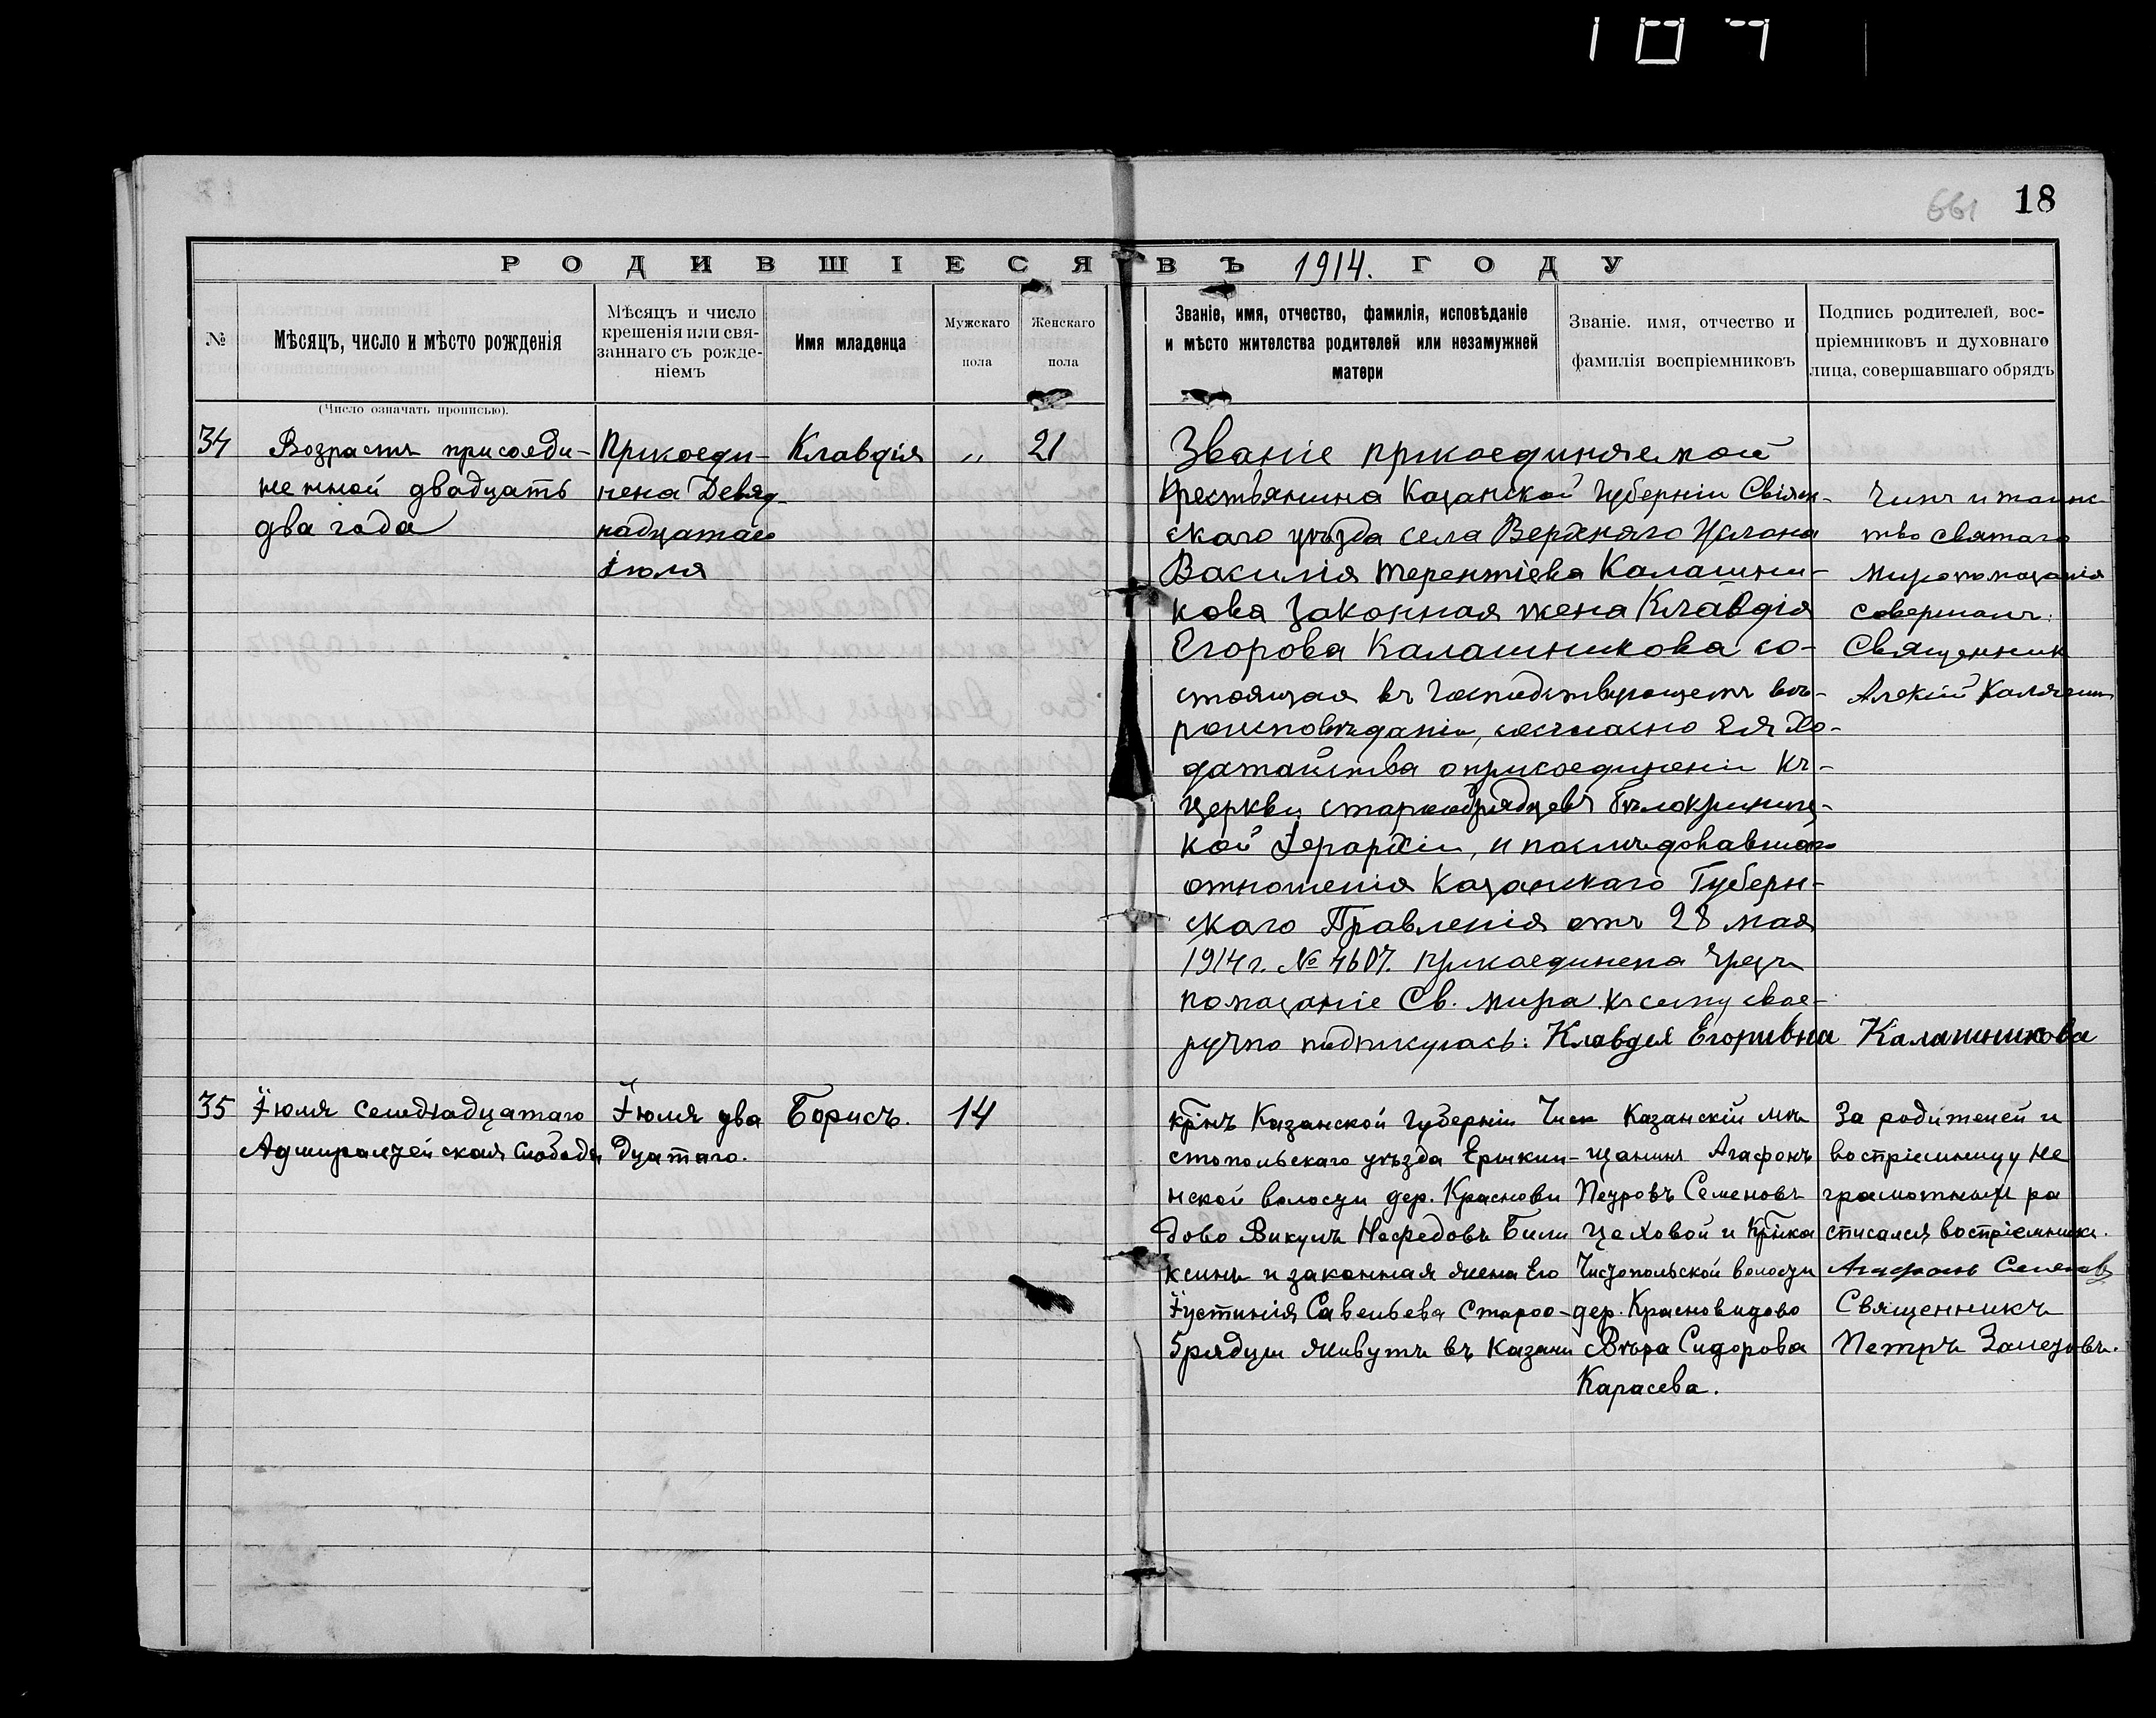 109
661 18
РОДИВШІЕСЯ ВЪ 1914. ГОДУ
№
Мѣсяцъ, число и мѣсто рожденія
Мѣсяцъ и число
крещенія или свя-
заннаго съ рожде-
ніемъ
Имя младенца
Мужскаго
пола
Женскаго
пола
Званіе, имя, отчество, фамилія, исповѣданіе
и мѣсто жителства родителей или незамужней
матери
Званіе. имя, отчество и
фамилія воспріемниковъ
Подпись родителей, вос-
пріемниковъ и духовнаго
лица, совершавшаго обрядъ
(Число означать прописью).
34
Возрастъ присоеди-
ненной двадцать
два года
Присоеди-
нена Девят-
надцатаго
Іюля
Клавдія
„
21
Званіе присоединяемой
Крестьянина Казанской Губерніи Свіяж-
скаго уѣзда села Верхняго Услона
Василія Терентіева Калашни-
кова законная жена Клавдія
Егорова Калашникова со-
стоящая въ Господствующемъ вѣ-
роисповѣданіи, согласно Ея Хо-
датайства о присоединеніи къ-
Церкви старообрядцевъ Бѣлокриниц-
кой Іерархіи, и послѣдовавшаго
отношенія Казанскаго Губерн-
скаго Правленія отъ 28 мая
1914 г. № 4607. присоединена чрезъ
помазаніе Св. мира къ сему свое-
ручно подписуюсь: Клавдея Егоривна Калашникова
Чинъ и таинс-
тво святаго
миропомазанія
совершалъ:
Священник
Алексій Калягин
35
Іюля семьнадцатаго
Адмиралтейская Слобода
Іюля два
дцатаго.
Борисъ.
14
крнъ Казанской губерніи Чи
стопольскаго уѣзда Ерыклин-
нской волости дер. Красново
дово Викулъ Нефедовъ Били
ксинъ и законная жена Его
Іустинія Савельева Староо-
брядцы живутъ въ Казани
Казанскій мѣ
щанинъ Агафонъ
Петровъ Семеновъ
Цеховой и Крнка
Чистопольской волости
дер. Красновидово
Вѣра Сидорова
Карасева.
За родителей и
воспріемницу не
грамотныхъ ра
списался воспріемник.
Агафонъ Семенов
Священникъ
Петръ Залетовъ.